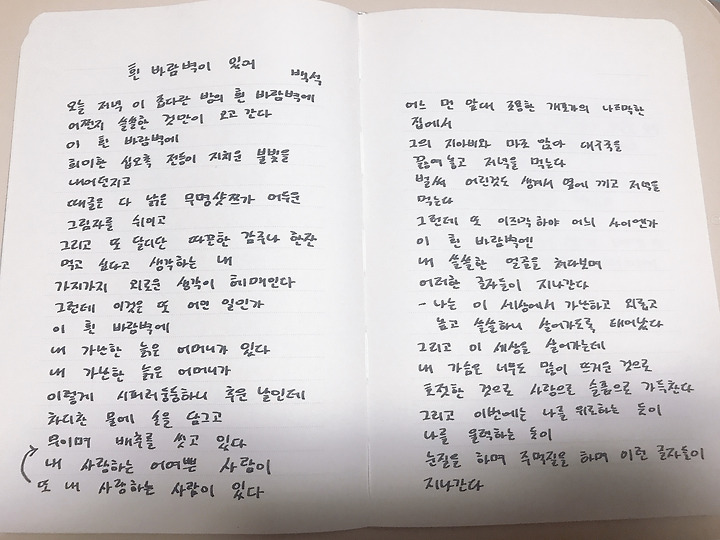 흰 바람벽이 있어
백석
오늘 저녁 이 좁다란 방의 흰 바람벽에
어쩐지 쓸쓸한 것만이 오고 간다
이 흰 바람벽에
희미한 십오촉 전등이 지치운 불빛을
내어던지고
때글은 다 낡은 무명샷쯔가 어두운
그림자를 쉬이고
그리고 또 달디단 따끈한 감주나 한잔
먹고 싶다고 생각하는 내
가지가지 외로운 생각이 헤매인다
그런데 이것은 또 어인 일인가
이 흰 바람벽에
내 가난한 늙은 어머니가 있다
내 가난한 늙은 어머니가
이렇게 시퍼러둥둥하니 추운 날인데
차디찬 물에 손을 담그고
무이며 배추를 씻고 있다
내 사랑하는 어여쁜 사람이
또 내 사랑하는 사람이 있다
어느 먼 앞대 조용한 개포가의 나즈막한
집에서
그의 지아비와 마조 앉아 대구국을
끓여 놓고 저녁을 먹는다
벌써 어린것도 생겨서 옆에 끼고 저녁을
먹는다
그런데 또 이즈막하야 어늬 사이엔가
이 흰 바람벽엔
내 쓸쓸한 얼골을 쳐다보며
이러한 글자들이 지나간다
- 나는 이 세상에서 가난하고 외롭고
높고 쓸쓸하니 살어가도록 태어났다
그리고 이 세상을 살어가는데
내 가슴은 너무도 많이 뜨거운 것으로
호젓한 것으로 사랑으로 슬픔으로 가득찬다
그리고 이번에는 나를 위로하는 듯이
나를 울력하는 듯이
눈질을 하며 주먹질을 하며 이런 글자들이
지나간다